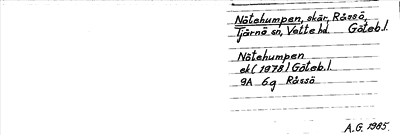 Nötehumpen, skär, Råssö,
Tjärnö sn, Vette hd. Göteb.l.
Nötehumpen
ek (1978) Göteb.l.
9A 6g Råssö
A.G. 1985.